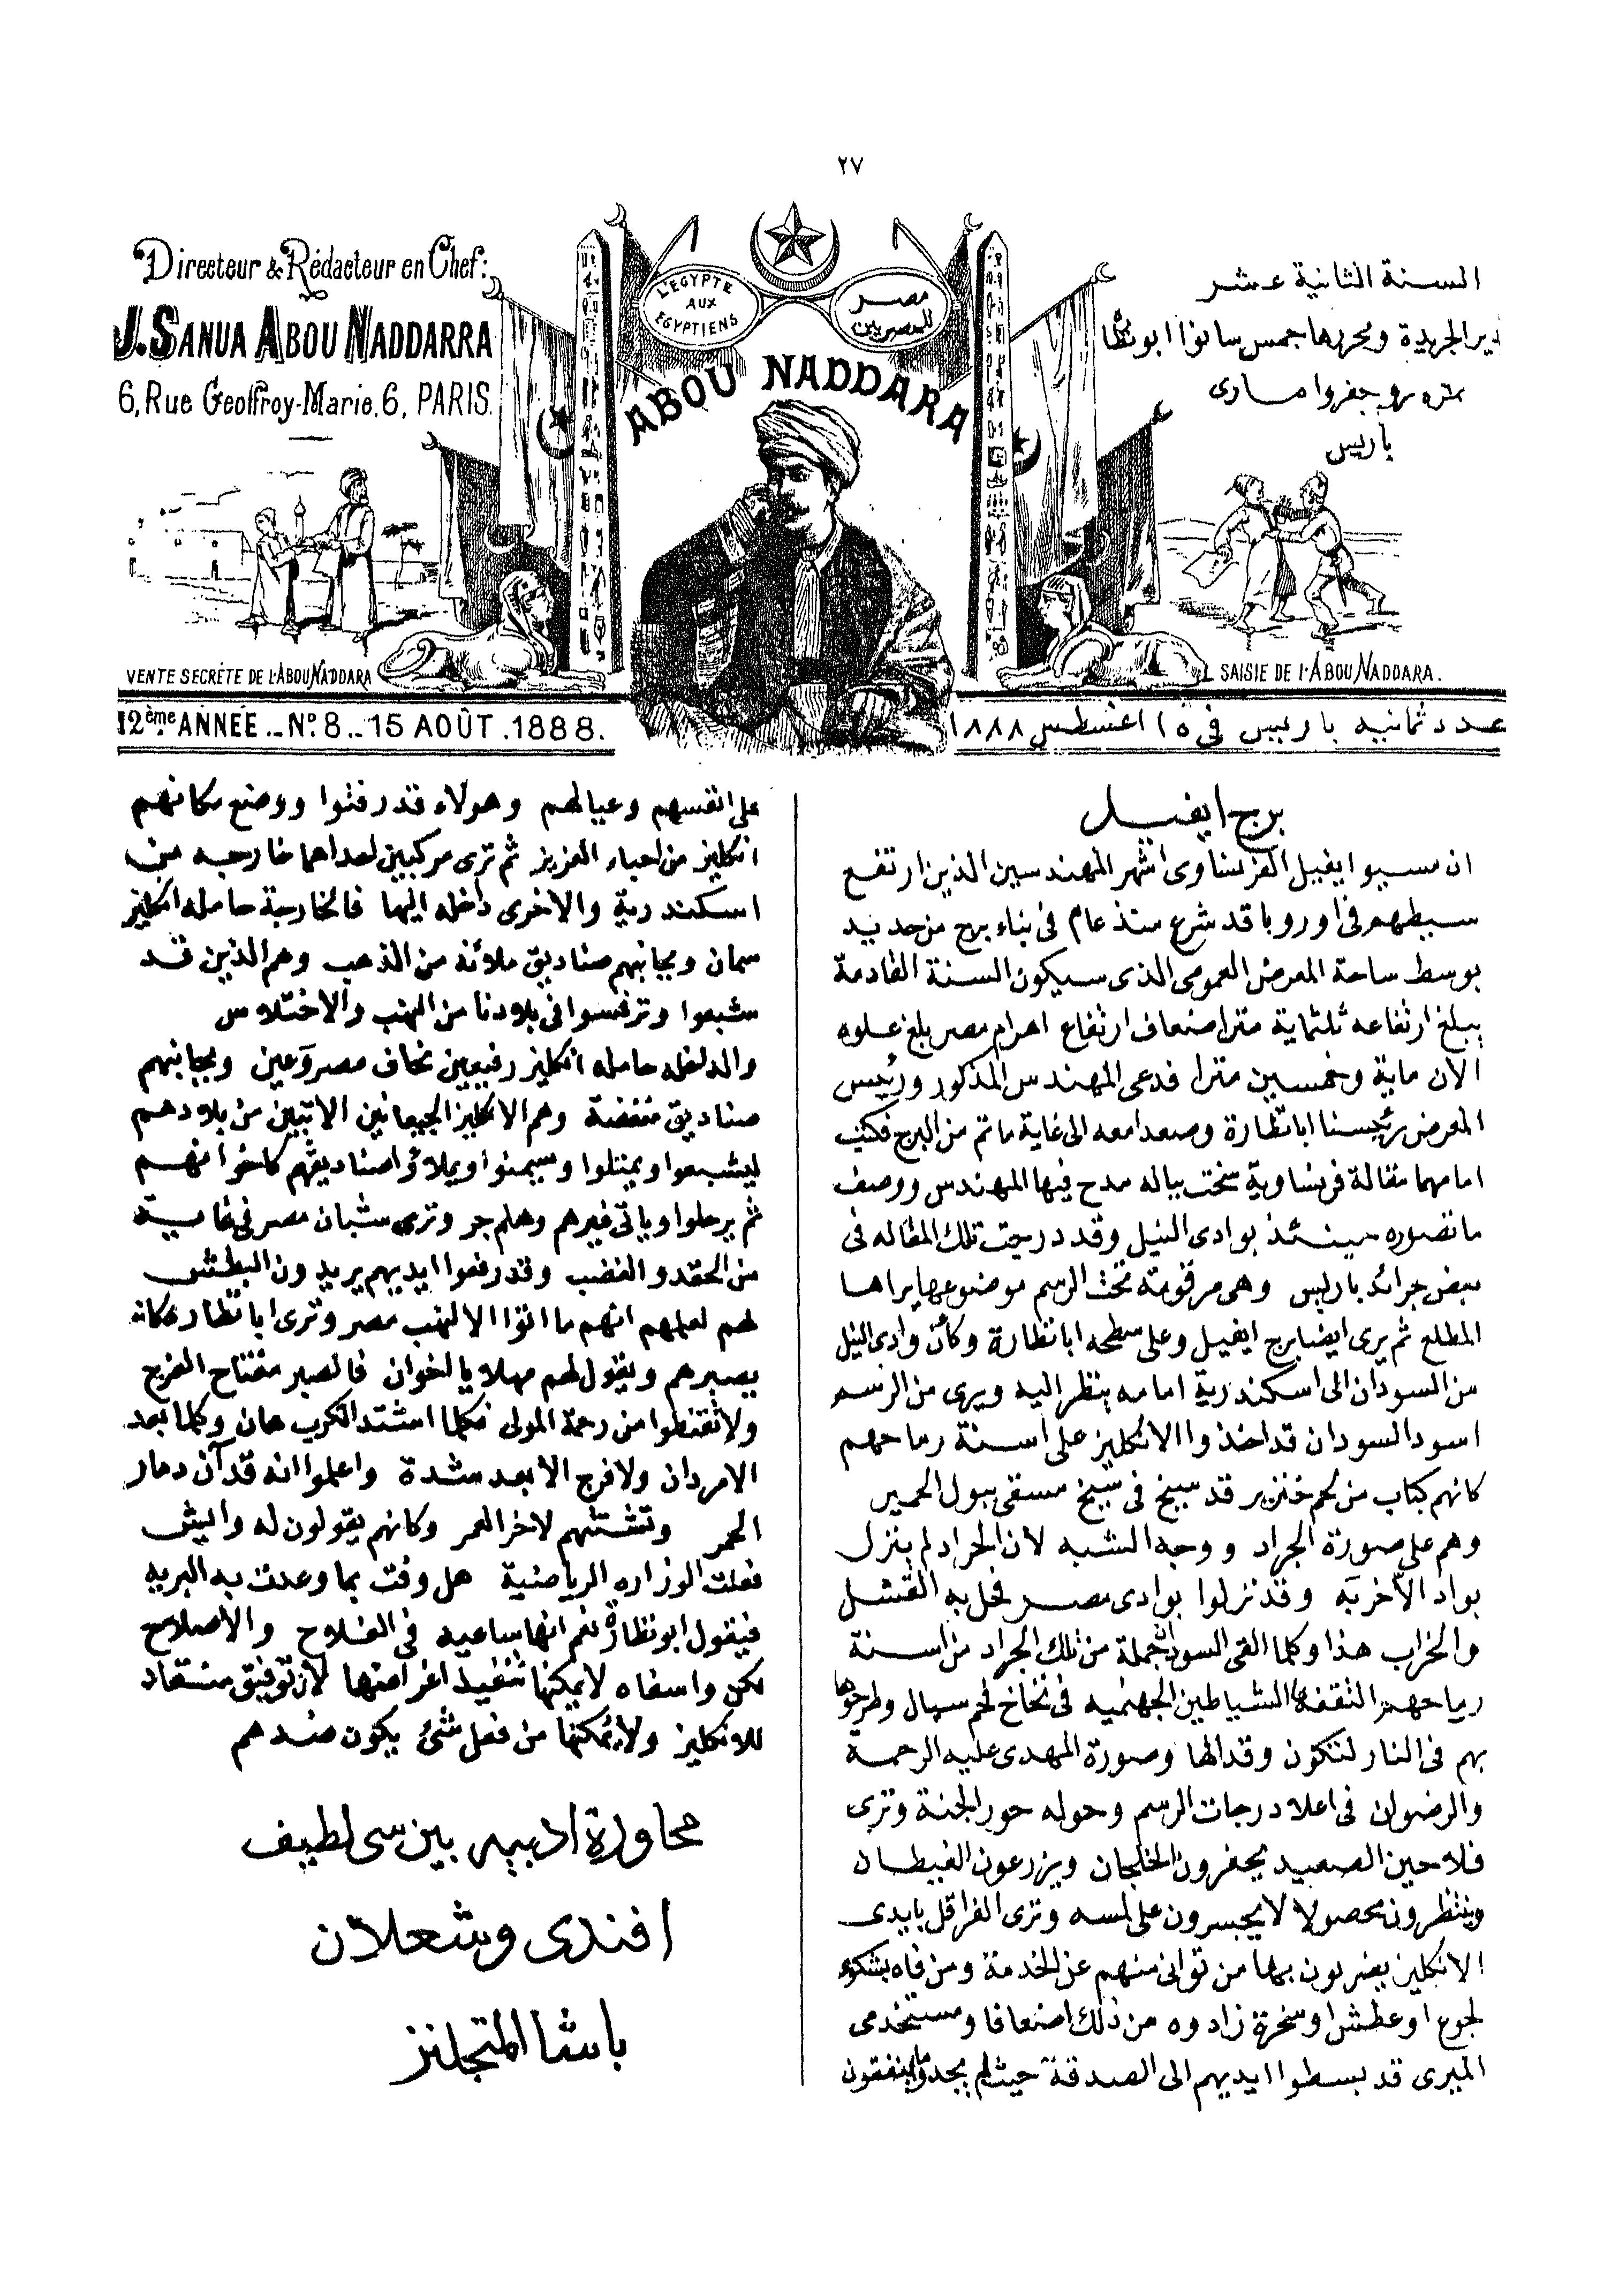 ٢٧
Directeur & Rédacteur en Chef:
J. SANUA ABOU NADDARRA
6, Rue Geoffroy-Marie, 6, PARIS.
L'EGYPTE
AUX
EGYPTIENS
مصر
للمصريين
ABOU NADDARA
السنة الثانية عشر
دير الجريدة ومحررها جمس سانوا ابو نظا
نمره ٦ رو جفروا مارى
باريس
VENTE SECRÈTE DE L'ABOU NADDARA
SAISIE DE L'ABOU NADDARA.
12ème ANNÉE _ No. 8 _ 15 AOÛT . 1888.
عدد ثمانيه باريس فى ١٥ اغسطس ١٨٨٨
برج ايفيل
ان مسيو ايفيل الفرنساوى اشهر المهندسين الذين ارتفع
سيطهم فى اوروبا قد شرع منذ عام فى بناء برج من حديد
بوسط ساحة المعرض العمومى الذى سيكون السنة القادمة
يبلغ ارتفاعه ثلثماية مترا ضعاف ارتفاع اهرام مصر بلغ علوه
الآن ماية وخمسين مترا فدعى المهندس المذكور ورئيس
المعرض رئيسنا ابا نظارة وصعد امعه الى غاية ما تم من البرج فكتب
امامهما مقالة فرنساوية سخت بباله مدح فيها المهندس ووصف
ما تصوره حينئذ بوادى النيل وقد درجت تلك المقاله فى
بعض جرائد باريس وهى مرقومة تحت الرسم موضوعها يراها
المطلع ثم يرى ايضا برج ايفيل وعلى سطحه ابا نظارة وكأن وادى النيل
من السودان الى اسكندرية امامه ينظر اليه ويرى من الرسم
اسود السودان قد اخذوا الانكليز على اسنة رماحهم
كانهم كباب من لحم خنزير قد سيخ فى سيخ مسقى ببول الحمير
وهم على صورة الجراد ووجه الشبه لان الجراد لم ينزل
بواد الا خربه وقد نزلوا بوادى مصر فحل به الفشل
والخراب هذا وكلما القى السودان جملة من تلك الجراد من اسنة
رماحهم التقفها الشياطين الجهنميه فى نخاخ لحم سيال وطرحوها
بهم فى النار لتكون وقدا لها وصورة المهدى عليه الرحمة
والرضوان فى اعلا درجات الرسم وحوله حور الجنة وترى
فلاحين الصعيد يحفرون الخلجان ويزرعون الغيطان
وينتظرون محصولا لا يجسرون على لمسه وترى الفراقل بايدى
الانكليز يضربون بها من توانى منهم عن الخدمة ومن فاه بشكوى
لجوع او عطش او سخرة زادوه من ذلك اضعافا ومستخدمى
الميرى قد بسطوا ايديهم الى الصدقة حيث لم يجدوا ما ينفقون
على انفسهم وعيالهم وهولاء قد رفتوا ووضع مكانهم
انكليز من احباء العزيز ثم ترى مركبين احداهما خارجه من
اسكندرية والاخرى داخله اليها فالخارجة حامله انكليز
سمان وبجانبهم صناديق ملائنه من الذهب وهم الذين قد
شبعوا وترفسوا فى بلادنا من النهب والاختلاس
والداخله حامله انكليز رفيعين نحاف مصروعين وبجانبهم
صناديق منفضة وهم الانكليز الجيعانين الاتيين من بلادهم
ليشبعوا ويمتلوا وسيمنوا ويملاؤا صناديقهم كاخوانهم
ثم يرحلوا وياتى غيرهم وهلم جر وترى شبان مصر فى غاية
من الحقد والغضب وقد رفعوا ايديهم يريدون البطش
لهم لعلمهم انهم ما اتوا الا لنهب مصر وترى ابا نظاره كانه
يصبرهم ويقول لهم مهلا يا اخوان فالصبر مفتاح الفرج
ولا تقنطوا من رحمة المولى فكلما اشتد الكرب هان وكلما بعد
الامر دان ولا فرج الا بعد شدة واعلموا انه قد آن دمار
الحمر وتشتتهم لاخر العمر وكانهم يقولون له واليش
فعلت الوزاره الرياضية هل وفت بما وعدت به البريه
فيقول ابو نظارة نعم انها ساعيه فى الفلاح والاصلاح
لكن واسفاه لا يمكنها تنفيذ اغراضها لان توفيق منقاد
للانكليز ولا يمكنها من فعل شئ يكون ضدهم
محاورة ادبيه بين سى لطيف
افندى وشعلان
باشا المتجلنز